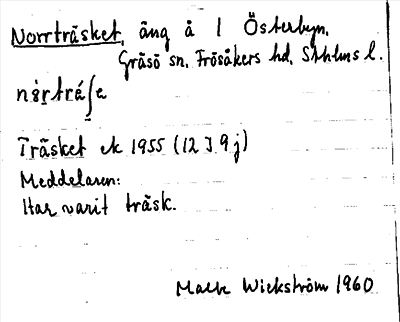 Norrträsket, äng å 1 Österbyn,
Gräsö sn, Frösåkers hd, Sthlms l.
Träsket ek 1955 (12 I 9 j)
Meddelaren:
Har varit träsk.
Wickström 1960